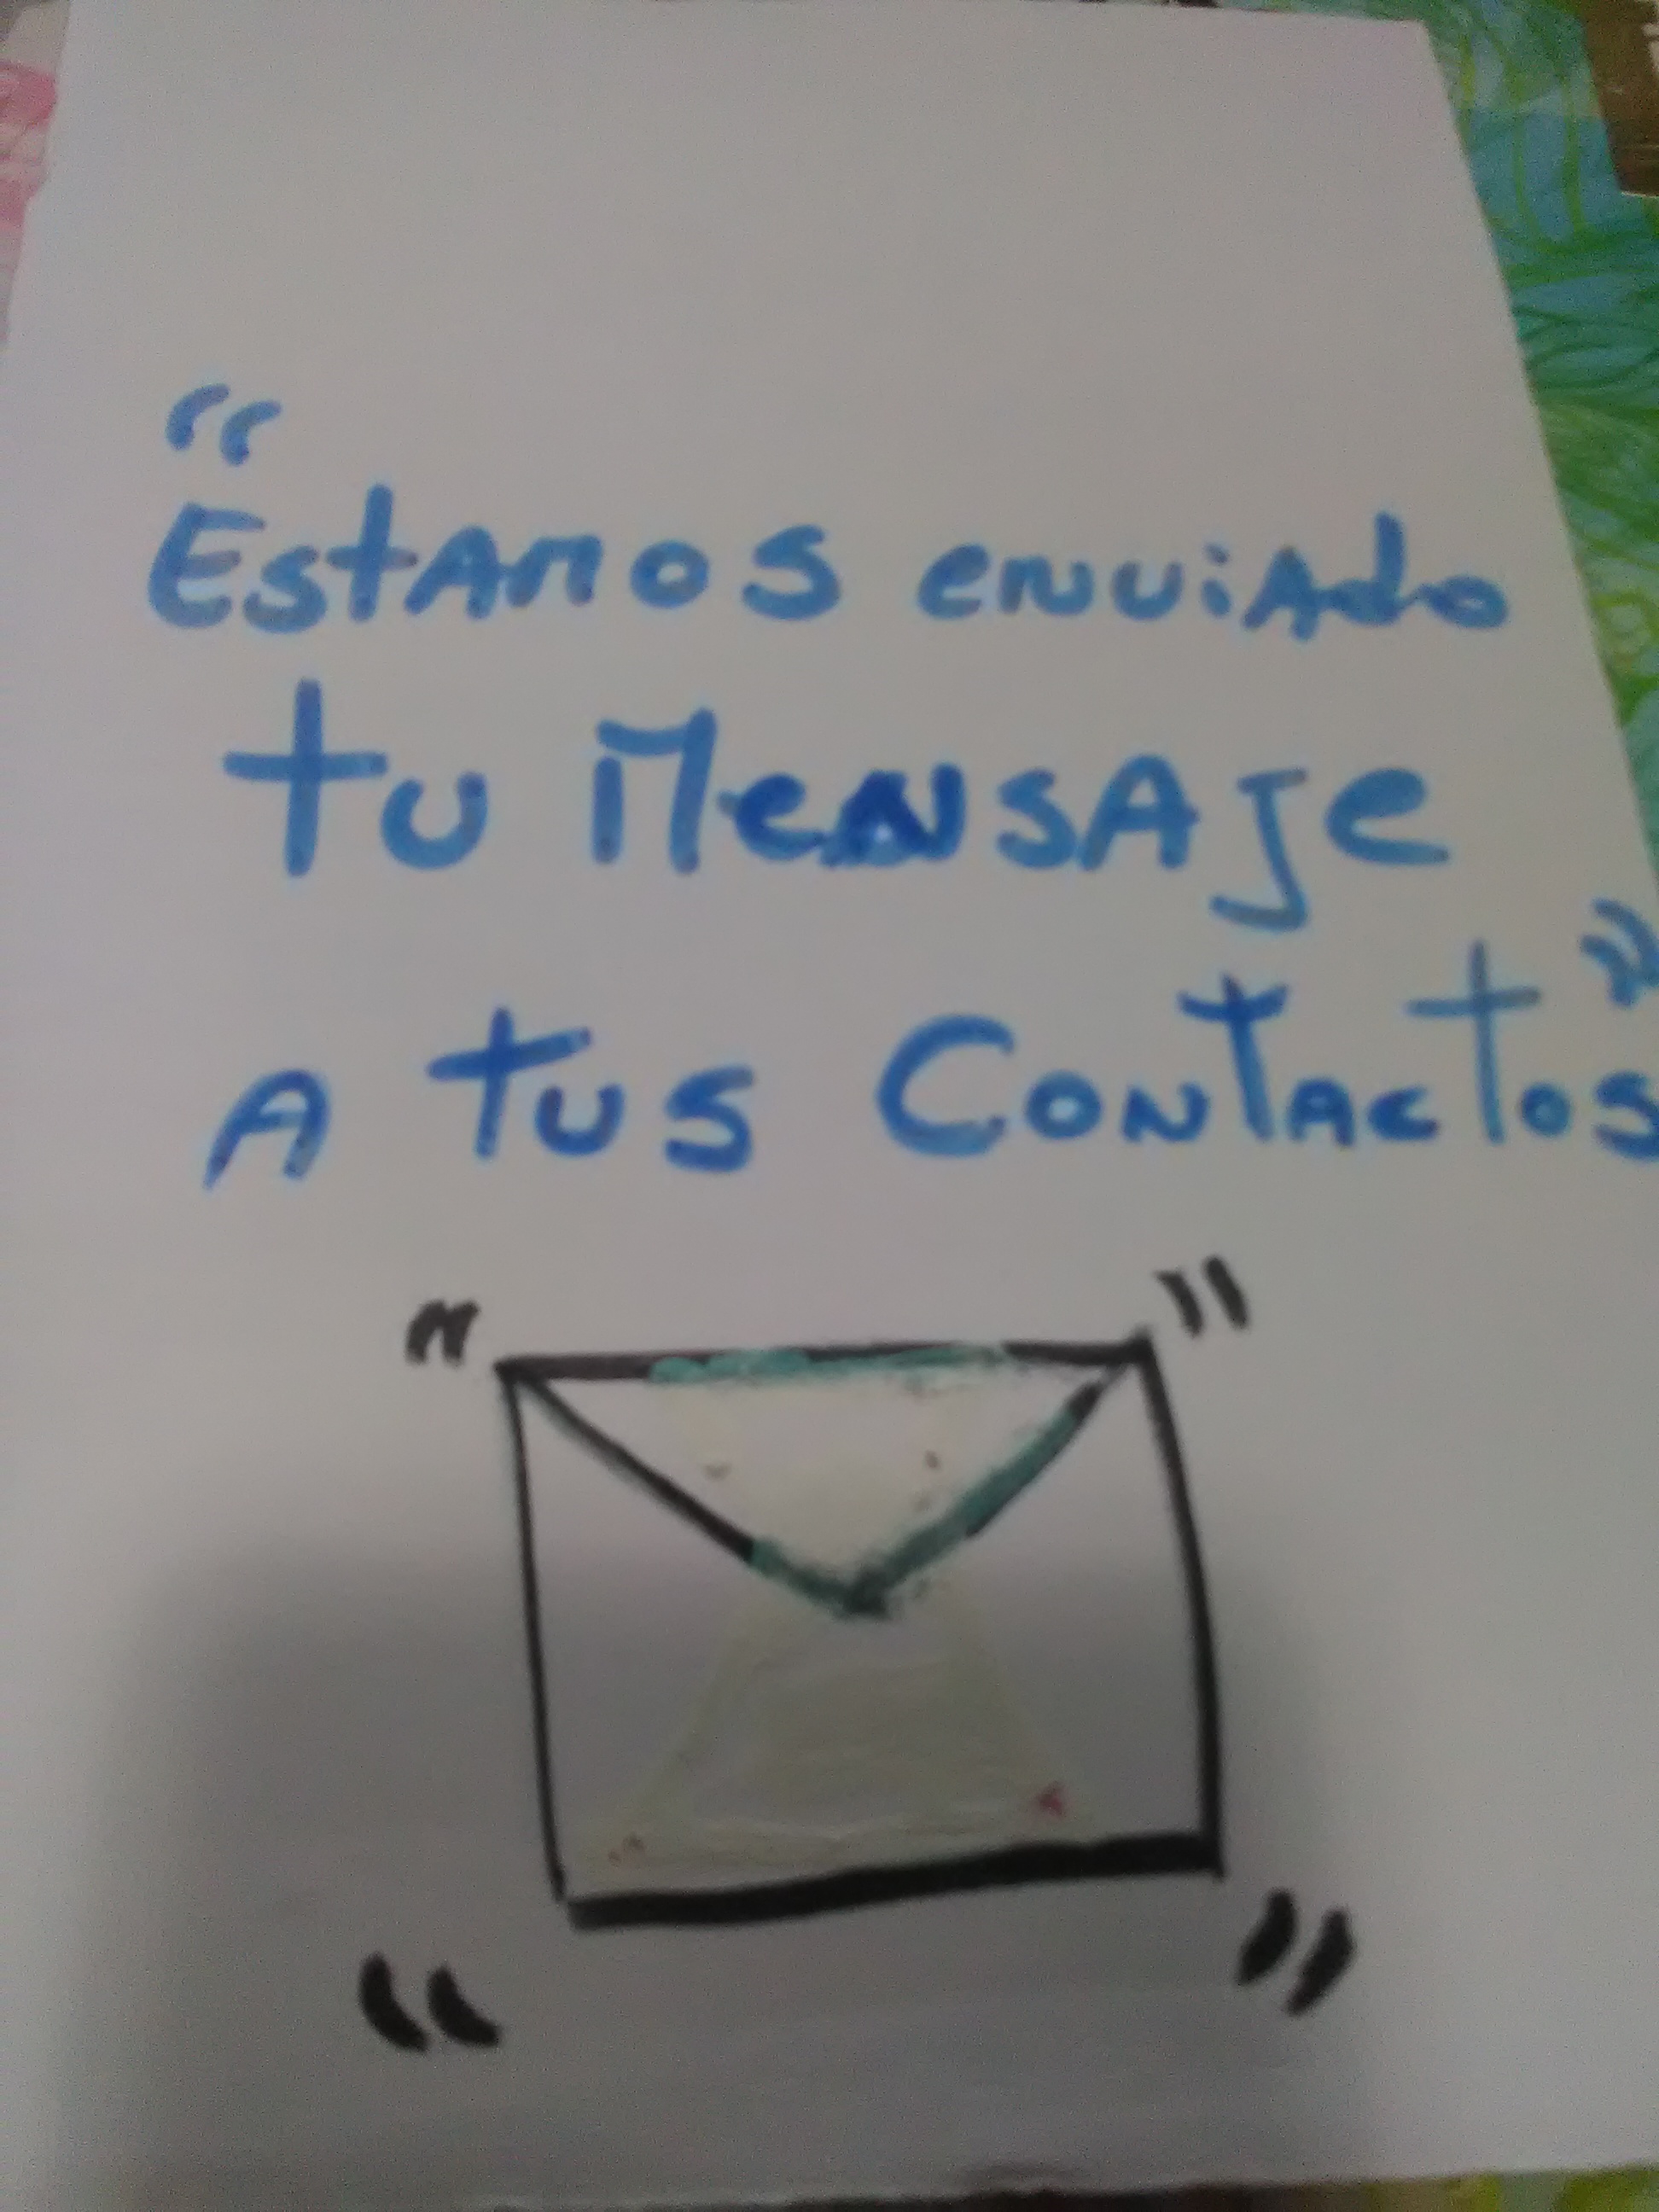 “
EstAmos enviAdo
tu MeNsAje
A tus ContActos”
“ ”
“ ”